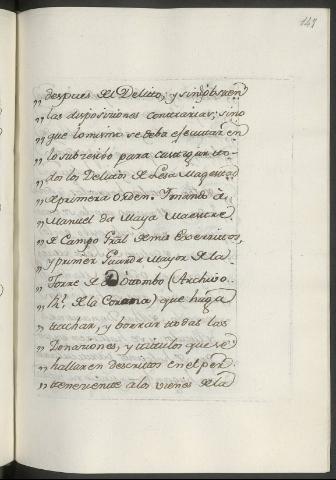 147
„ despues del Delito; y sin obsten
„ las disposiciones contrarias; sino
„ que lo mismo se deba ejecutar en
„ lo subcesibo para castigar to-
„ dos los Delitos de Lesa Magestad
„ de primera orden. Imando â
„ Manuel da Maya Maestre
„ de Campo Gral de mis Exercitos,
„ y primer Guarda Mayor de la
„ Torre de Dotombo (Archivo
„ R.l de la Corona) que haga
„ tachar, y borrar todas las
„ Donaciones, y titulos que se
„ hallaren descritos en el per
„ teneciente a los vienes de la